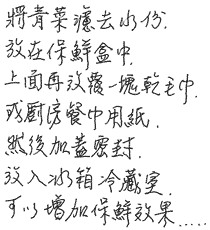 將青菜濾去水份.
放在保鮮盒中.
上面再放置一塊乾毛巾.
或廚房餐巾用紙.
然後加蓋密封.
放入冰箱冷藏室.
可以增加保鮮效果.....